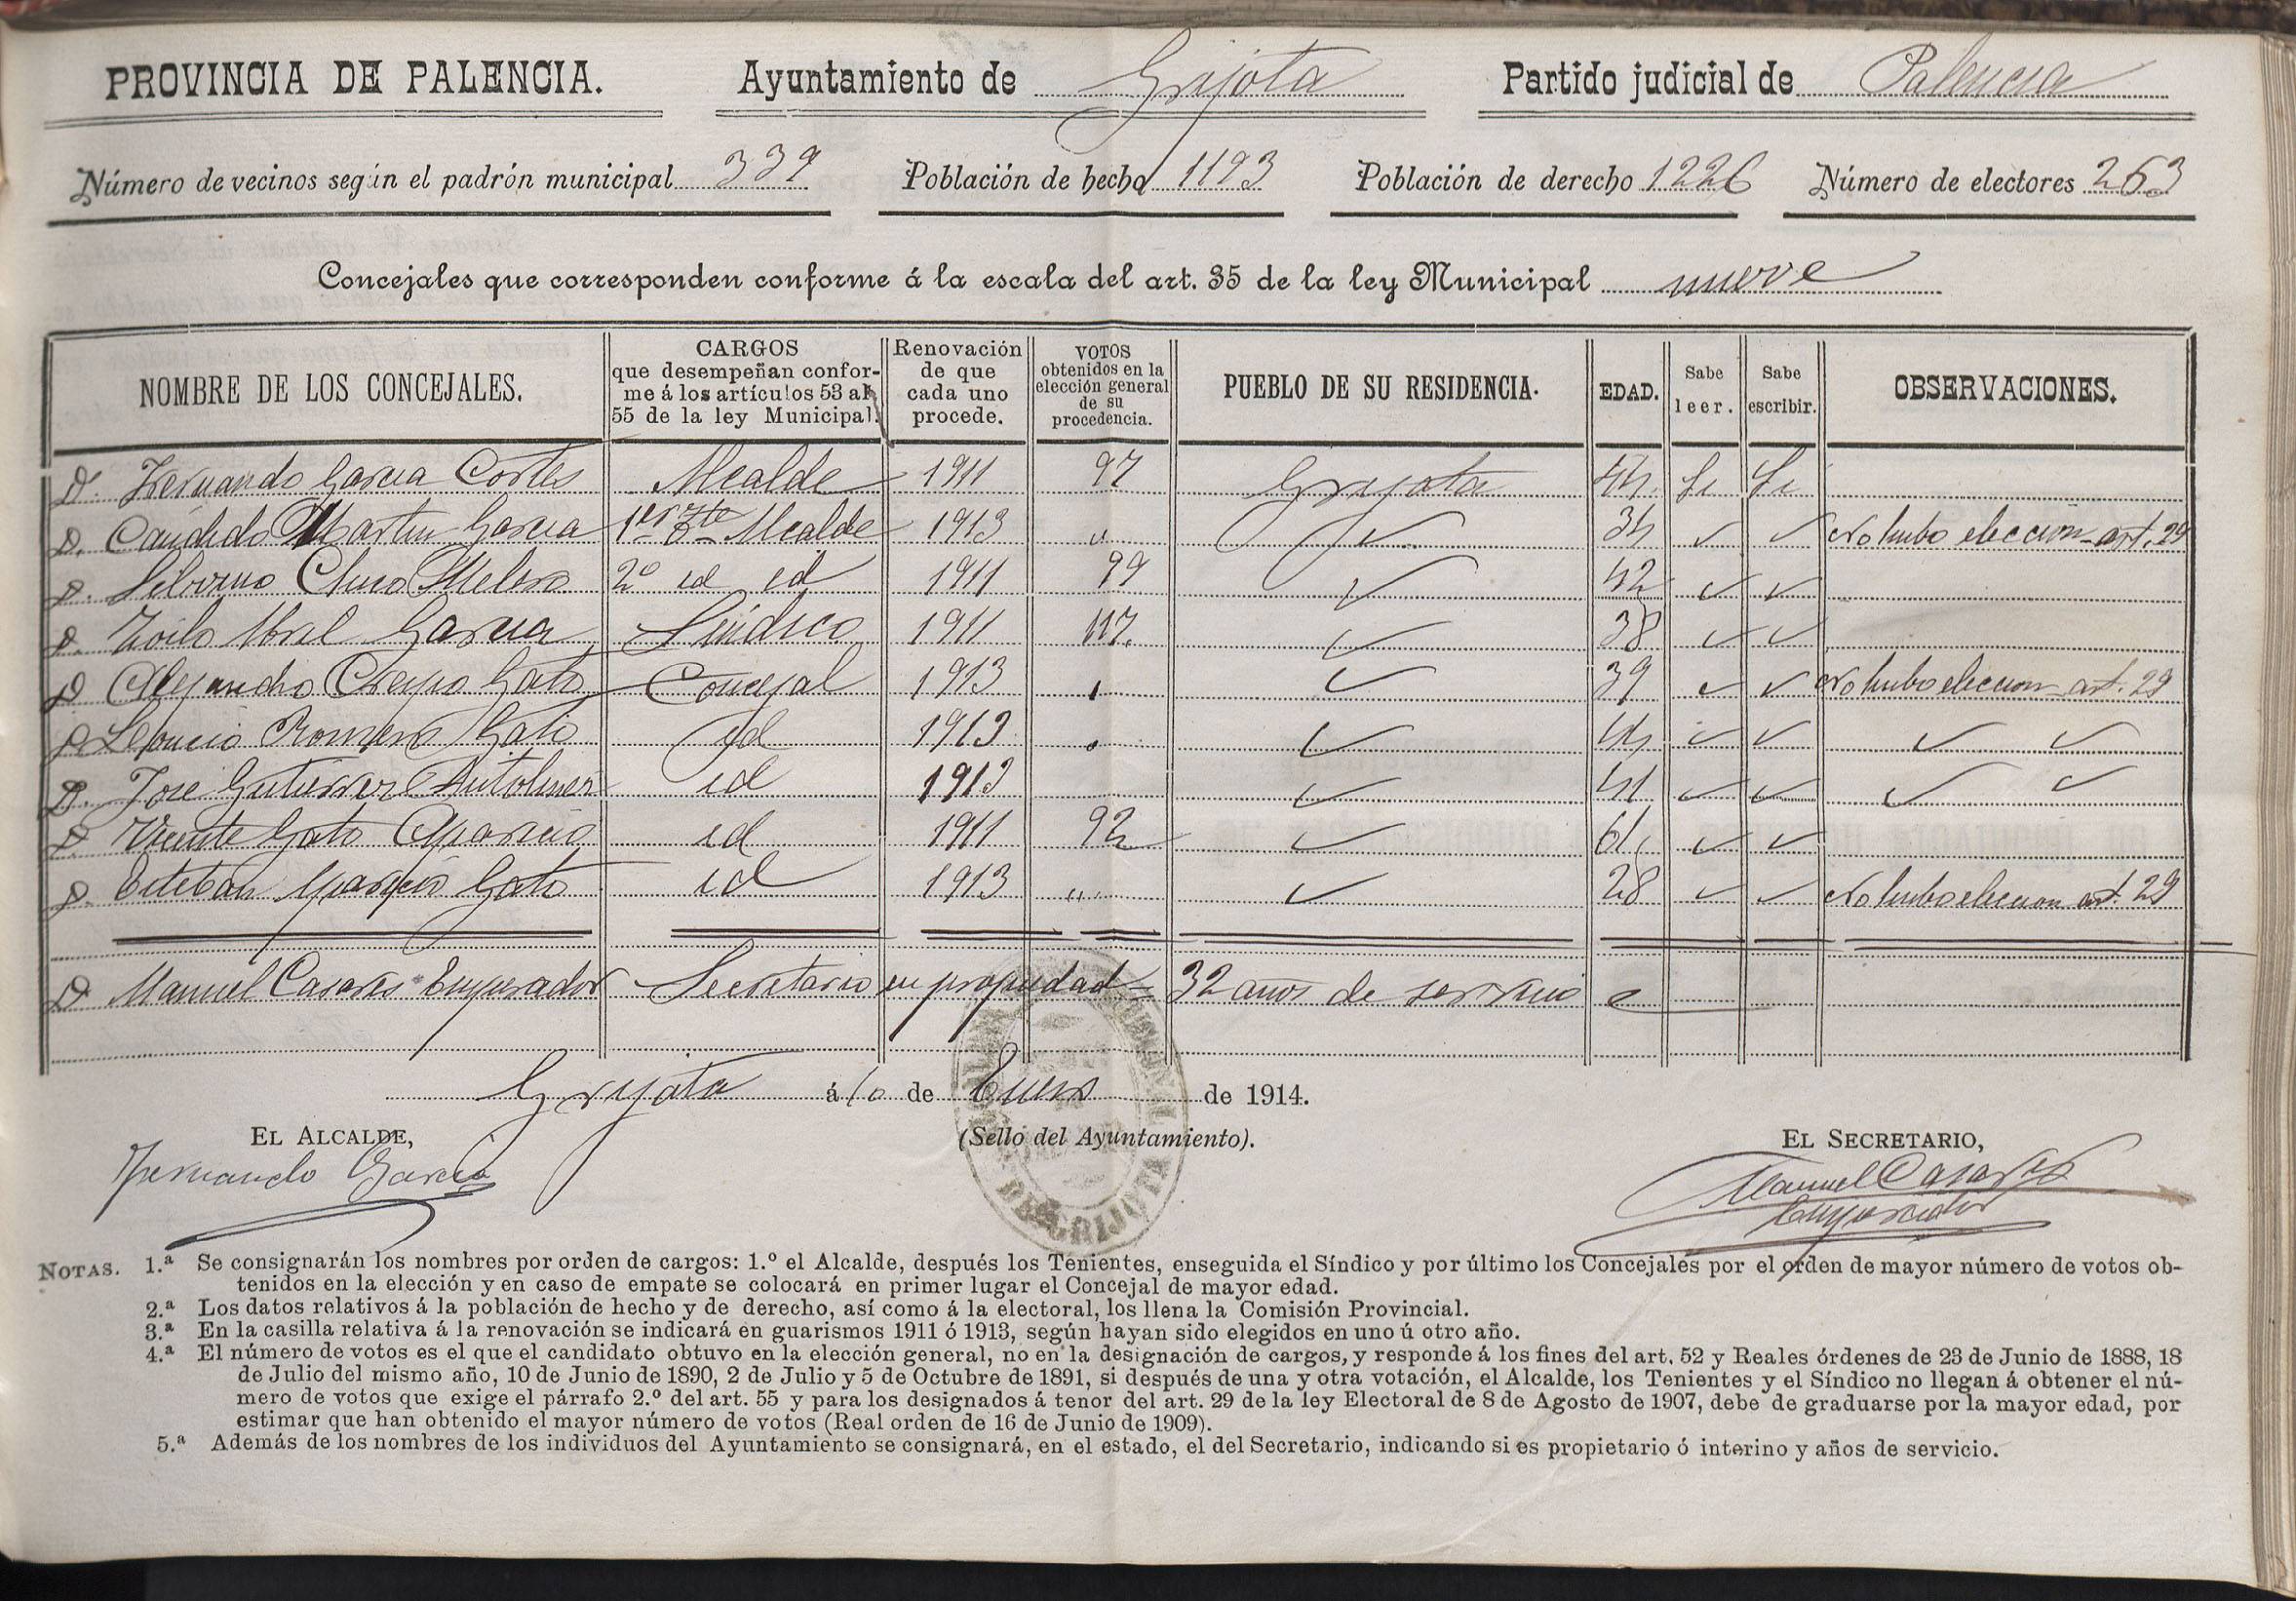 PROVINCIA DE PALENCIA. Ayuntamiento de Grijota Partido judicial de Palencia
Número de vecinos según el padrón municipal 339 Población de hecho 1193 Población de derecho 1226 Número de electores 263
Concejales que corresponden conforme á la escala del art. 35 de la ley Municipal nueve
NOMBRE DE LOS CONCEJALES. CARGOS que desempeñan conforme á los artículos 53 al 55 de la ley Municipal. Renovación de que cada uno procede. VOTOS obtenidos en la elección general de su procedencia. PUEBLO DE SU RESIDENCIA. EDAD. Sabe leer. Sabe escribir. OBSERVACIONES.
D. Fernando Garcia Cortes Alcalde 1911 97 Grijota 44 Si Si
D. Candido Martin Garcia 1er Tte Alcalde 1913 " ✓ 34 ✓ ✓ No hubo eleccion art. 29
D. Silvino Melero 2º id id 1911 99 ✓ 42 ✓ ✓
D. Zoilo Abril Garcia Síndico 1911 117. ✓ 38 ✓ ✓
D. Alejandro Crespo Gato Concejal 1913 ✓ 39 ✓ ✓ No hubo eleccion art. 29
D. Leoncio Romero Gato id 1913 ✓ 44 ✓ ✓ ✓ ✓
D. Jose Gutierrez Antolinez id 1913 ✓ 41 ✓ ✓ ✓ ✓
D. Vicente Gato Aparicio id 1911 92 ✓ 61 ✓ ✓
D. Esteban Aparicio Gato id 1913 " ✓ 28 ✓ ✓ No hubo eleccion art. 29
D. Manuel Casares Emperador Secretario en propiedad = 32 años de servicio
Grijota á 10 de Enero de 1914.
EL ALCALDE, (Sello del Ayuntamiento). EL SECRETARIO,
Fernando Garcia
Manuel Casares
Emperador
DE GRIJOTA
NOTAS. 1.ª Se consignarán los nombres por orden de cargos: 1.º el Alcalde, después los Tenientes, enseguida el Síndico y por último los Concejales por el orden de mayor número de votos ob-
tenidos en la elección y en caso de empate se colocará en primer lugar el Concejal de mayor edad.
2.ª Los datos relativos á la población de hecho y de derecho, así como á la electoral, los llena la Comisión Provincial.
3.ª En la casilla relativa á la renovación se indicará en guarismos 1911 ó 1913, según hayan sido elegidos en uno ú otro año.
4.ª El número de votos es el que el candidato obtuvo en la elección general, no en la designación de cargos, y responde á los fines del art. 52 y Reales órdenes de 23 de Junio de 1888, 18
de Julio del mismo año, 10 de Junio de 1890, 2 de Julio y 5 de Octubre de 1891, si después de una y otra votación, el Alcalde, los Tenientes y el Síndico no llegan á obtener el nú-
mero de votos que exige el párrafo 2.º del art. 55 y para los designados á tenor del art. 29 de la ley Electoral de 8 de Agosto de 1907, debe de graduarse por la mayor edad, por
estimar que han obtenido el mayor número de votos (Real orden de 16 de Junio de 1909).
5.ª Además de los nombres de los individuos del Ayuntamiento se consignará, en el estado, el del Secretario, indicando si es propietario ó interino y años de servicio.